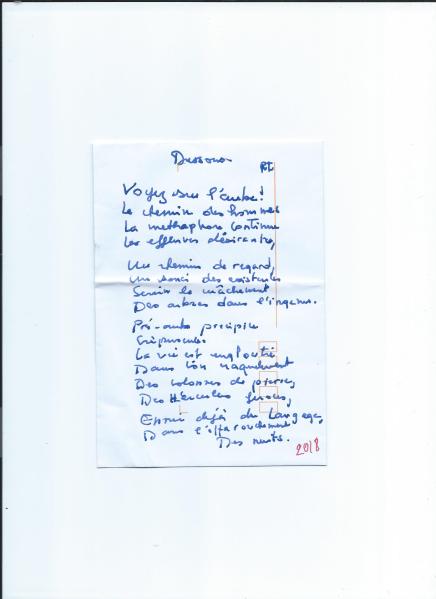 RL
Voyez sur l'aube!
Le chemin des hommes
La métaphore continue
Les effluves désirantes,
Un chemin de regard,
Un souci des existences
Des arbres dans l'ingénu.
Pré-aube précipice
Crépuscule.
La vie est engloutie
Dans son
Des colonnes de pierre,
Des Hercules féroces,
déjà du langage,
Dans l'effarouchement
Des nuits.
2018